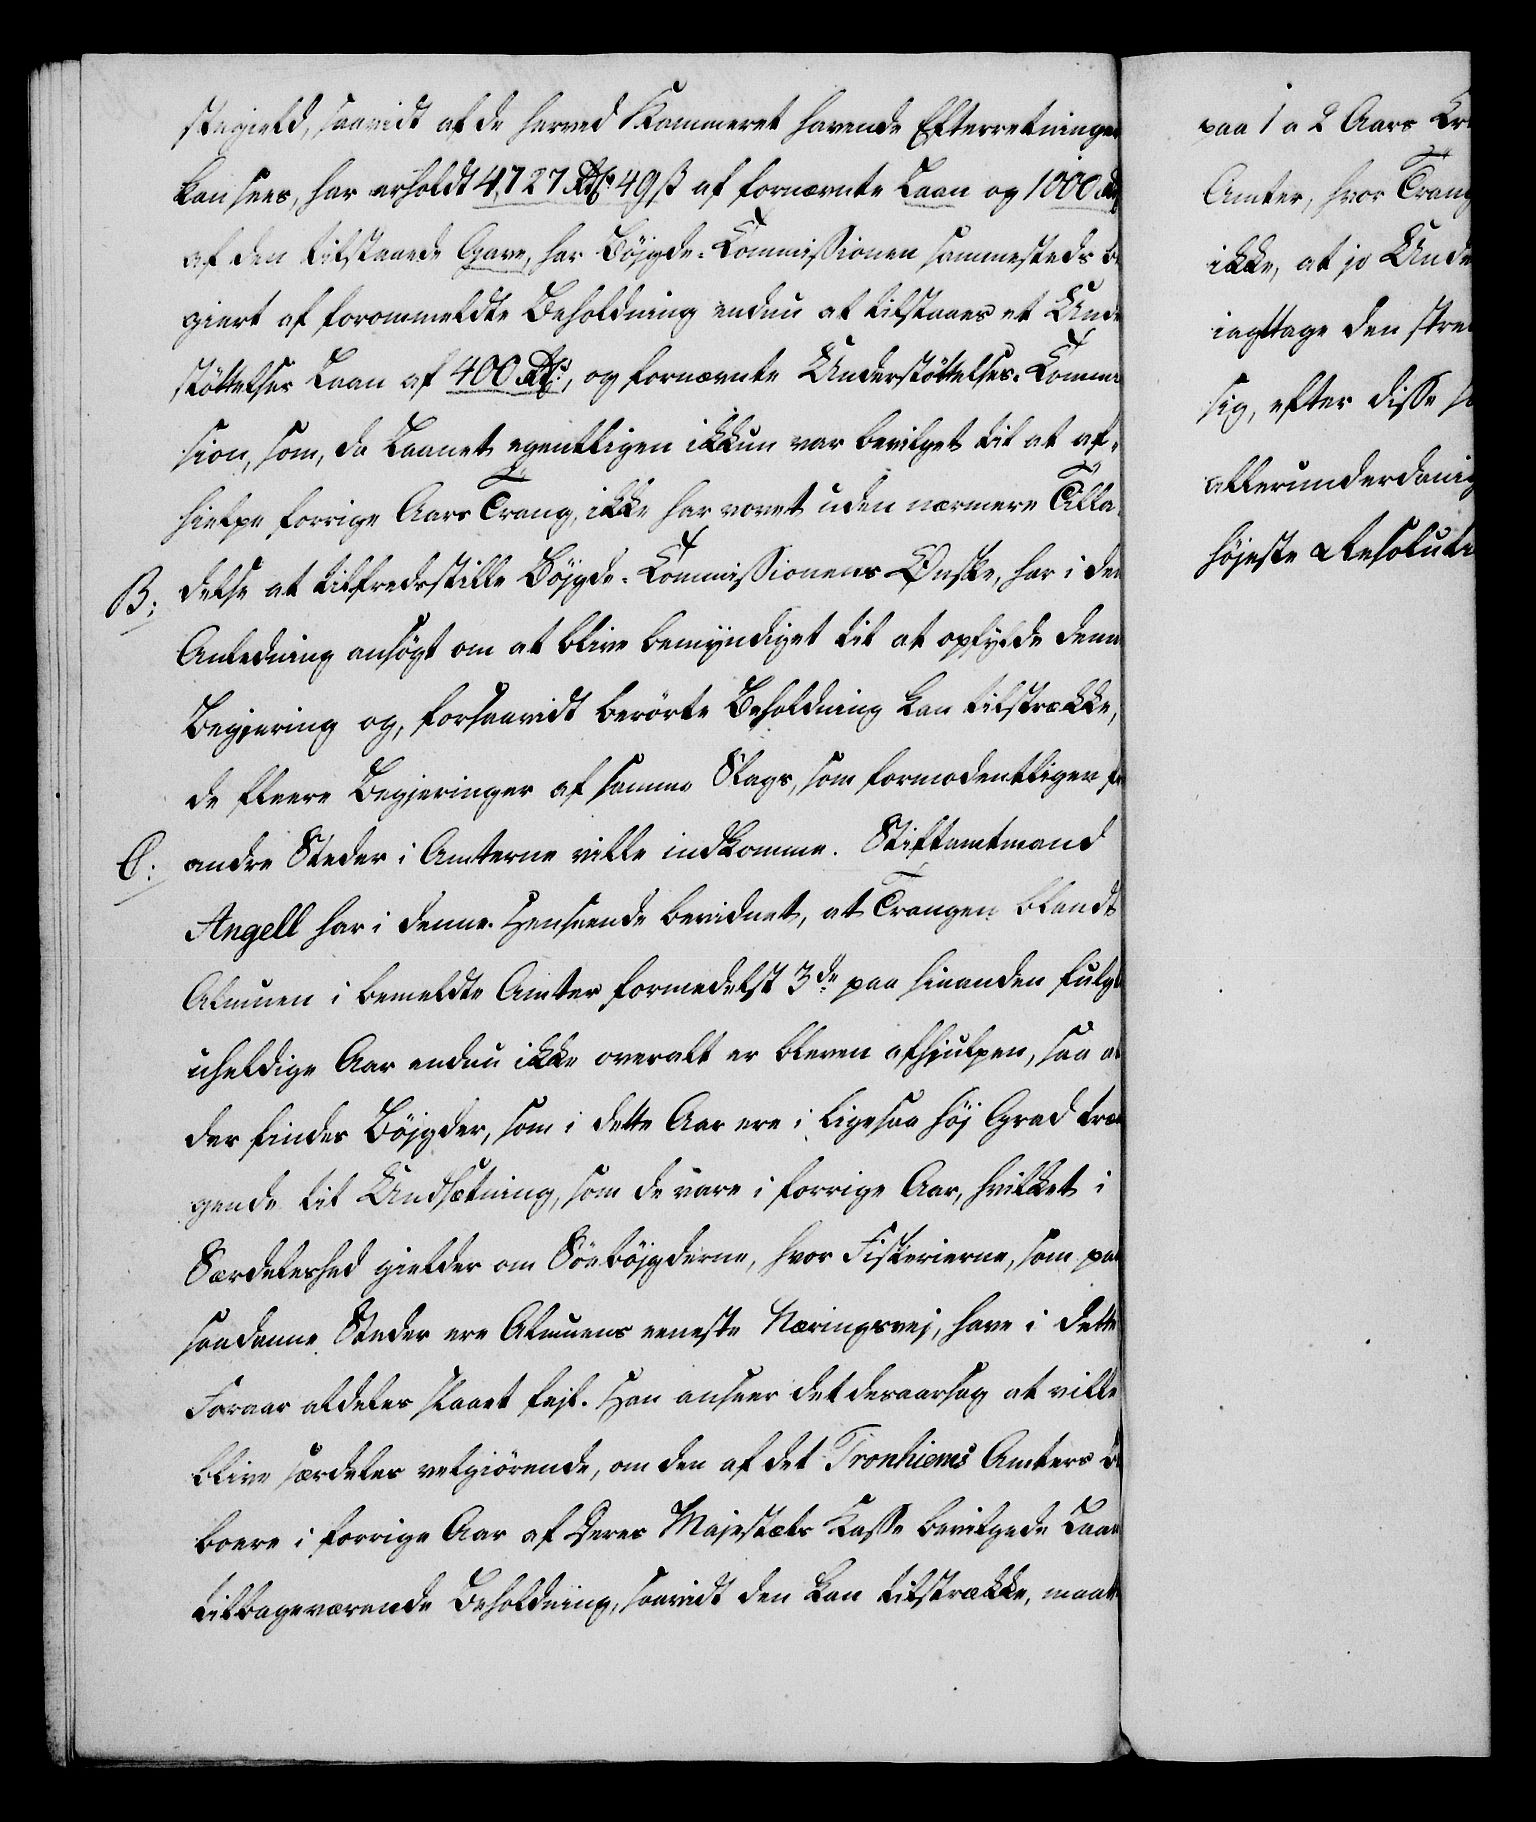 stegield, saavidt af de herved Kammeret havende Efterretninger
kan sees, har erholdt 4,727 Rdr 49 ß af fornævnte Laan og 1000 Rdr
af den tilstaaede Gave, har Böjgde-Commissionen sammesteds be
giert af forommeldte Beholdning endnu at tilstaaes et Unde
stöttelses Laan af 400 Rdr, og fornævnte Understöttelses-Commis
sion, som, da Laanet egentligen ikkun var bevilget til at af-
hielpe forrige Aars Trang, ikke har vovet uden nærmere Tilla-
B: delse at tilfredsstille Böjgde-Commissionens Ønske, har i den
Anledning ansögt om at blive bemyndiget til at opfylde denne
Begjering og, forsaavidt berörte Beholdning kan tilstrække,
de fleere Begjeringer af samme Slags, som formodentligen fra
C: andre Steder i Amterne ville indkomme. Stiftamtmand
Angell har i denne Henseende bevidnet, at Trangen blandt
Almuen i bemeldte Amter formedelst 3de paa hinanden fulgte
uheldige Aar endnu ikke overalt er bleven afhjulpen, saa at
der findes Böjgder, som i dette Aar ere i ligesaa höj Grad træn
gende til Undsætning, som de vare i forrige Aar, hvilket i
Særdeleshed gielder om Söeböjgderne, hvor Fiskerierne, som paa
saadanne Steder ere Almuens eeneste Næringsvej, have i dette
Foraar aldeles slaaet fejl. Han anseer det desaarsag at ville
blive særdeles velgiörende, om den af det Tronhiems Amters Be
boere i forrige Aar af Deres Majestæts Kasse bevilgede Laan
tilbageværende Beholdning, saavidt den kan tilstrække, maatte
paa 1 a 2 Aars Cre
Amter, hvor Trang
ikke, at jo Unde
iagttage den stre
sig, efter disse
allerunderdanig
höjeste Resoluti